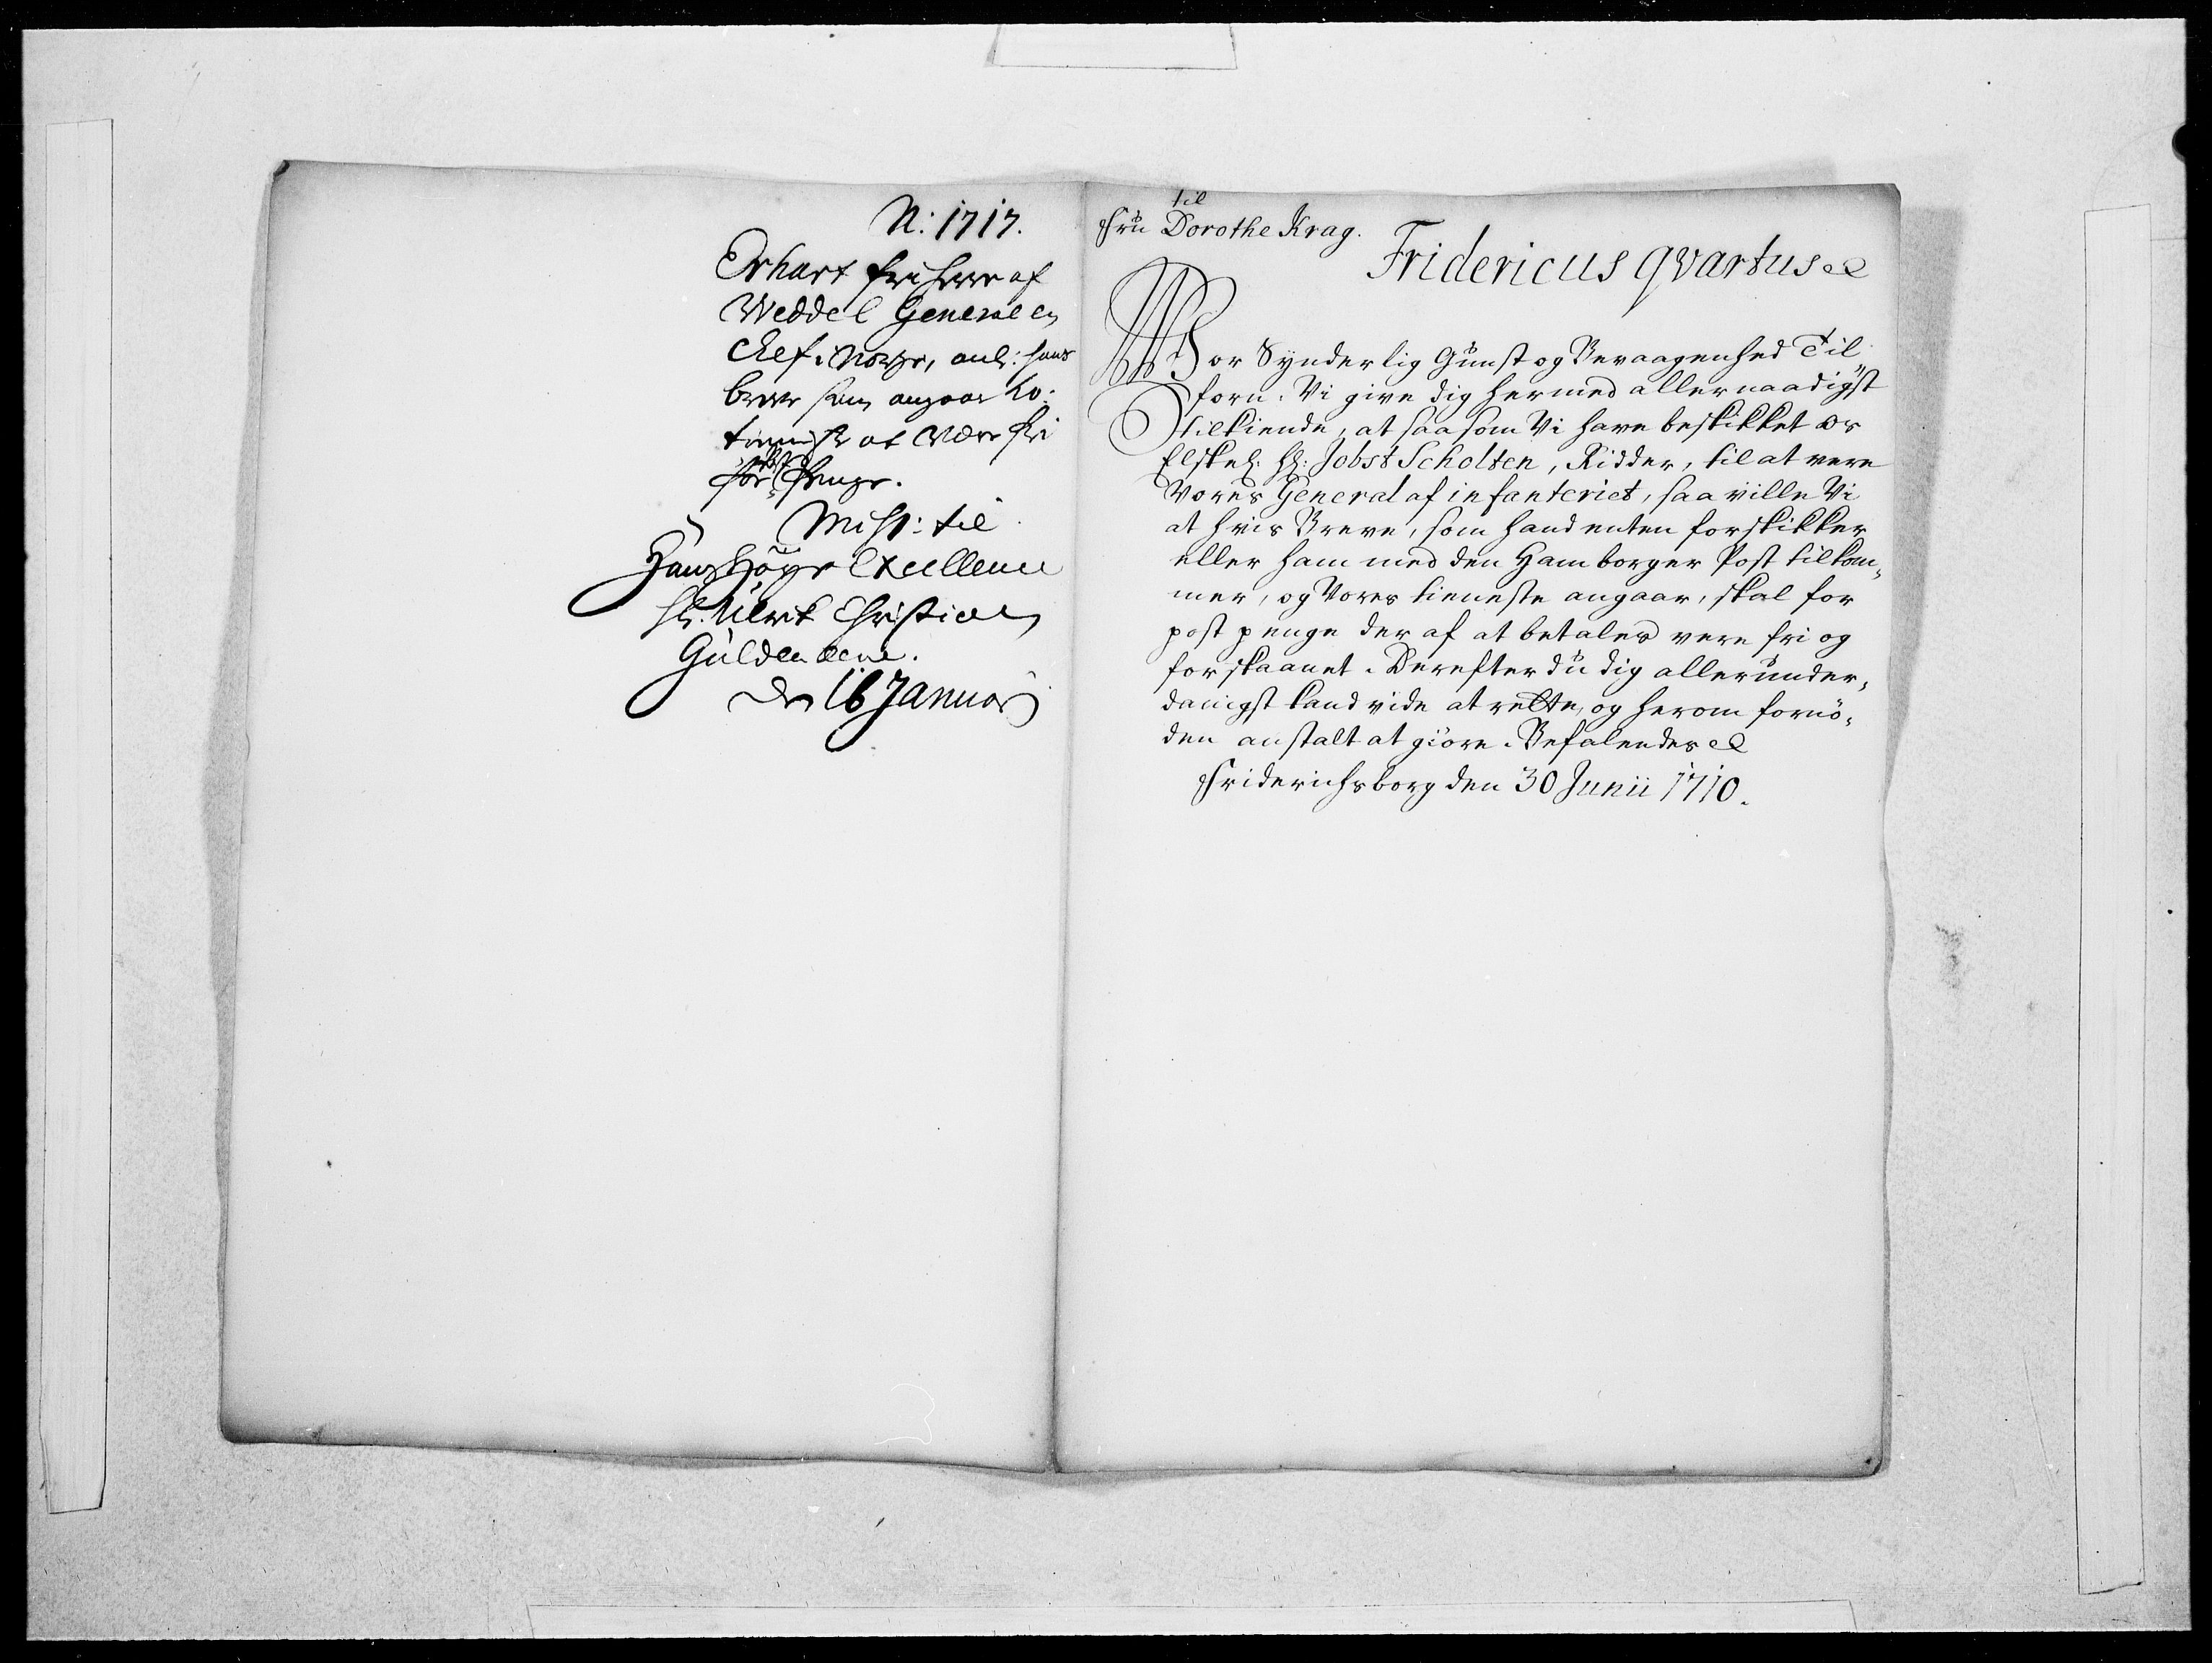 N: 1717.
Erhart friherre af
Weddel General en
Chef i Norge, anl: hans
breve som angaar Ko:
tienniste at være fri
for post Penge.
Miss: til
Hans Høye Excellence
Hr. Ulrik Christian
Güldenløve.
den 16 Januar
til
Frú Dorothe Krag.
Fridericus qvartus etc
Vor Synderlig Gúnst og Bevaagenhed Til,,
forn. Vi give dig hermed allernaadigst
tilkiende, at saasom Vi have beskikket os
Elskel: Hr: Jobst Scholten, Ridder, til at vere
Vores General af infanteriet, saa ville Vi
at hvis Breve, som hand enten forskikker
eller ham med den Hamborger Post tilkom,,
mer, og Vores tieneste angaar, skal for
post penge der af at betales vere fri og
forskaanet. Derefter dú dig allerúnder,,
danigst kand vide at rette, og herom fornö,,
den anstalt at giöre. Befalendes etc
Friderichsborg den 30 Junii 1710.